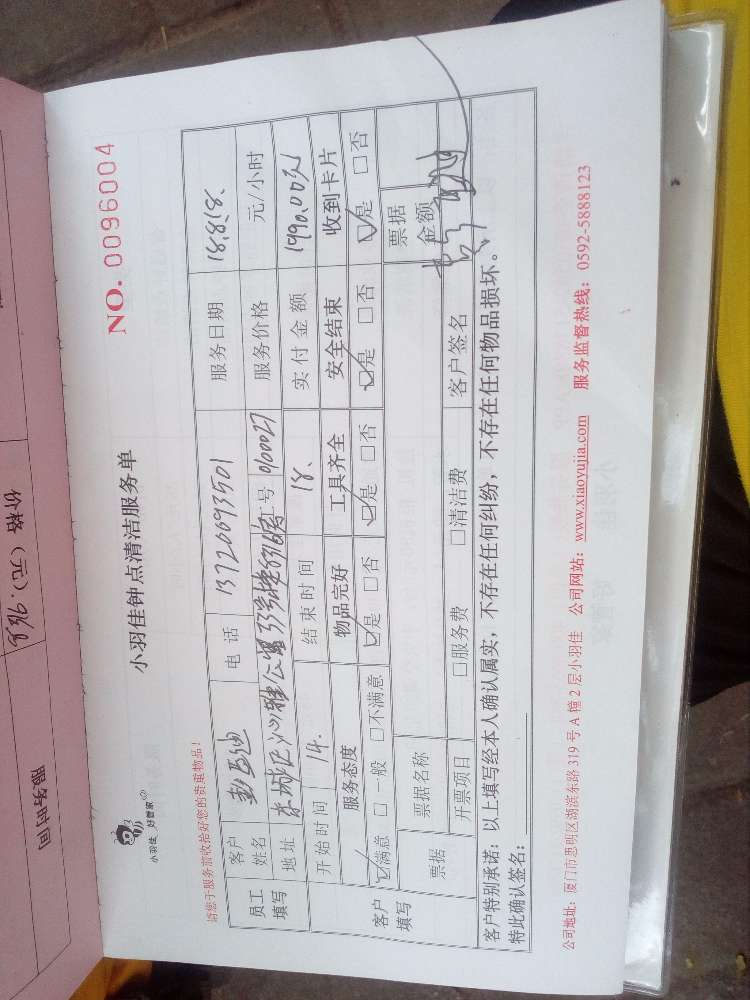 NO. 0096004
小羽佳 好管家
小羽佳钟点清洁服务单
请您于服务前收拾好您的贵重物品！
员工填写
客户姓名 电话 13720093501 服务日期 18.8.18.
地址 工号 0100027 服务价格 元/小时
开始时间 14. 结束时间 18. 实付金额 190.00元
客户填写
服务态度 物品完好 工具齐全 安全结束 收到卡片
☑满意 □一般 □不满意 ☑是 □否 ☑是 □否 ☑是 □否 ☑是 □否
票据 票据名称 票据金额
开票项目 □服务费 □清洁费 客户签名
客户特别承诺：以上填写经本人确认属实，不存在任何纠纷，不存在任何物品损坏。
特此确认签名：
公司地址：厦门市思明区湖滨东路 319 号 A 幢 2 层小羽佳 公司网站：www.xiaoyujia.com 服务监督热线：0592-5888123
价格（元）
服务时间